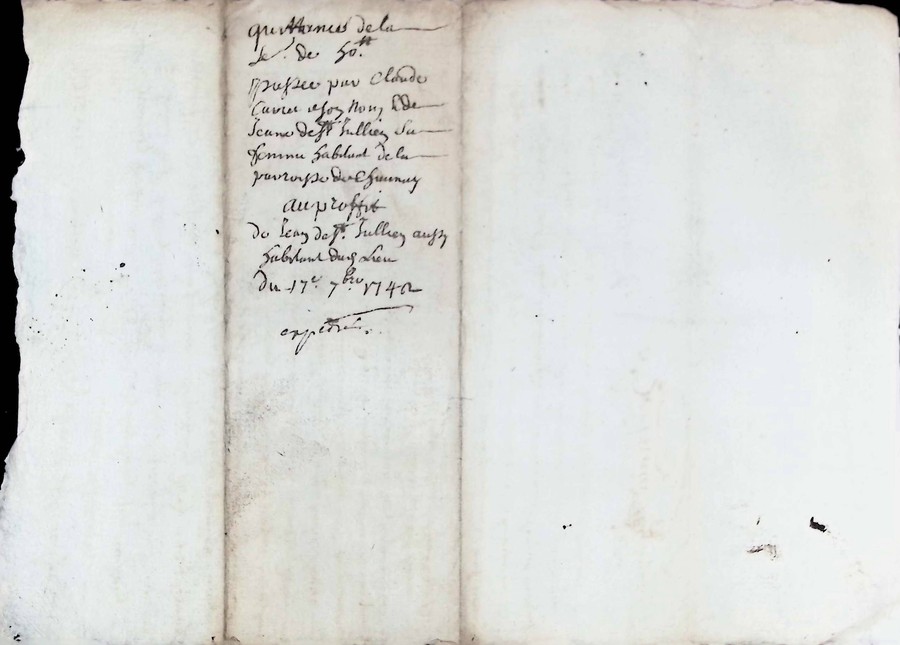 quittance de la
So. de 50tt
passée par Claude
Curier et son nom & de
Jeane de St Jullien sa
femme habitant de la
parroisse de Chaunay
au proffit
de Jean de St. Jullien aussy
habitant dud lieu
du 17e 7bre 1742
expédié